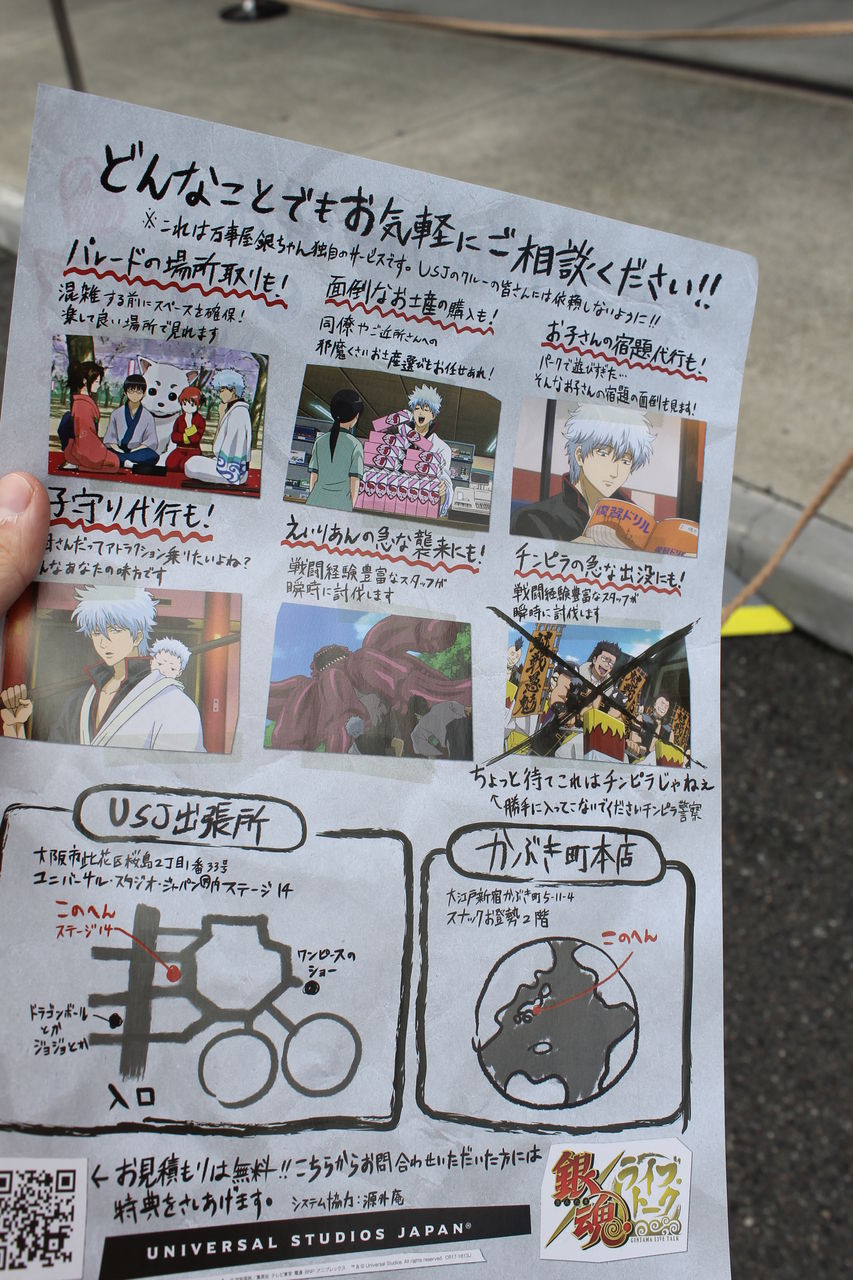 どんなことでもお気軽にご相談ください!!
※これは万事屋銀ちゃん独自のサービスです。USJのクルーの皆さんには依頼しないように!!
パレードの場所取りも!
混雑する前にスペースを確保!
楽して良い場所で見れます
面倒なお土産の購入も!
同僚やご近所さんへの
邪魔くさいお土産選びもお任せあれ!
お子さんの宿題代行も!
パークで遊びすぎた…
そんなお子さんの宿題の面倒も見ます!
復習ドリル
復習ドリル
子守り代行も!
さんだってアトラクション乗りたいよね?
んなあなたの味方です
えいりあんの急な襲来にも!
戦闘経験豊富なスタッフが
瞬時に討伐します
チンピラの急な出没にも!
戦闘経験豊富なスタッフが
瞬時に討伐します
ちょっと待てこれはチンピラじゃねぇ
↑勝手に入ってこないでくださいチンピラ警察
USJ出張所
大阪市此花区桜島2丁目1番33号
ユニバーサル・スタジオ・ジャパン®内ステージ14
このへん
ステージ14
ワンピースの
ショー
ドラゴンボール
とか
ジョジョとか
入口
かぶき町本店
大江戸新宿かぶき町5-11-4
スナックお登勢2階
このへん
←お見積もりは無料!!こちらからお問合わせいただいた方には
特典をさしあげます。 システム協力:源外庵
UNIVERSAL STUDIOS JAPAN®
銀魂
ライブ・トーク
GINTAMA LIVE TALK
™ & © Universal Studios. All rights reserved. CR17-1613J